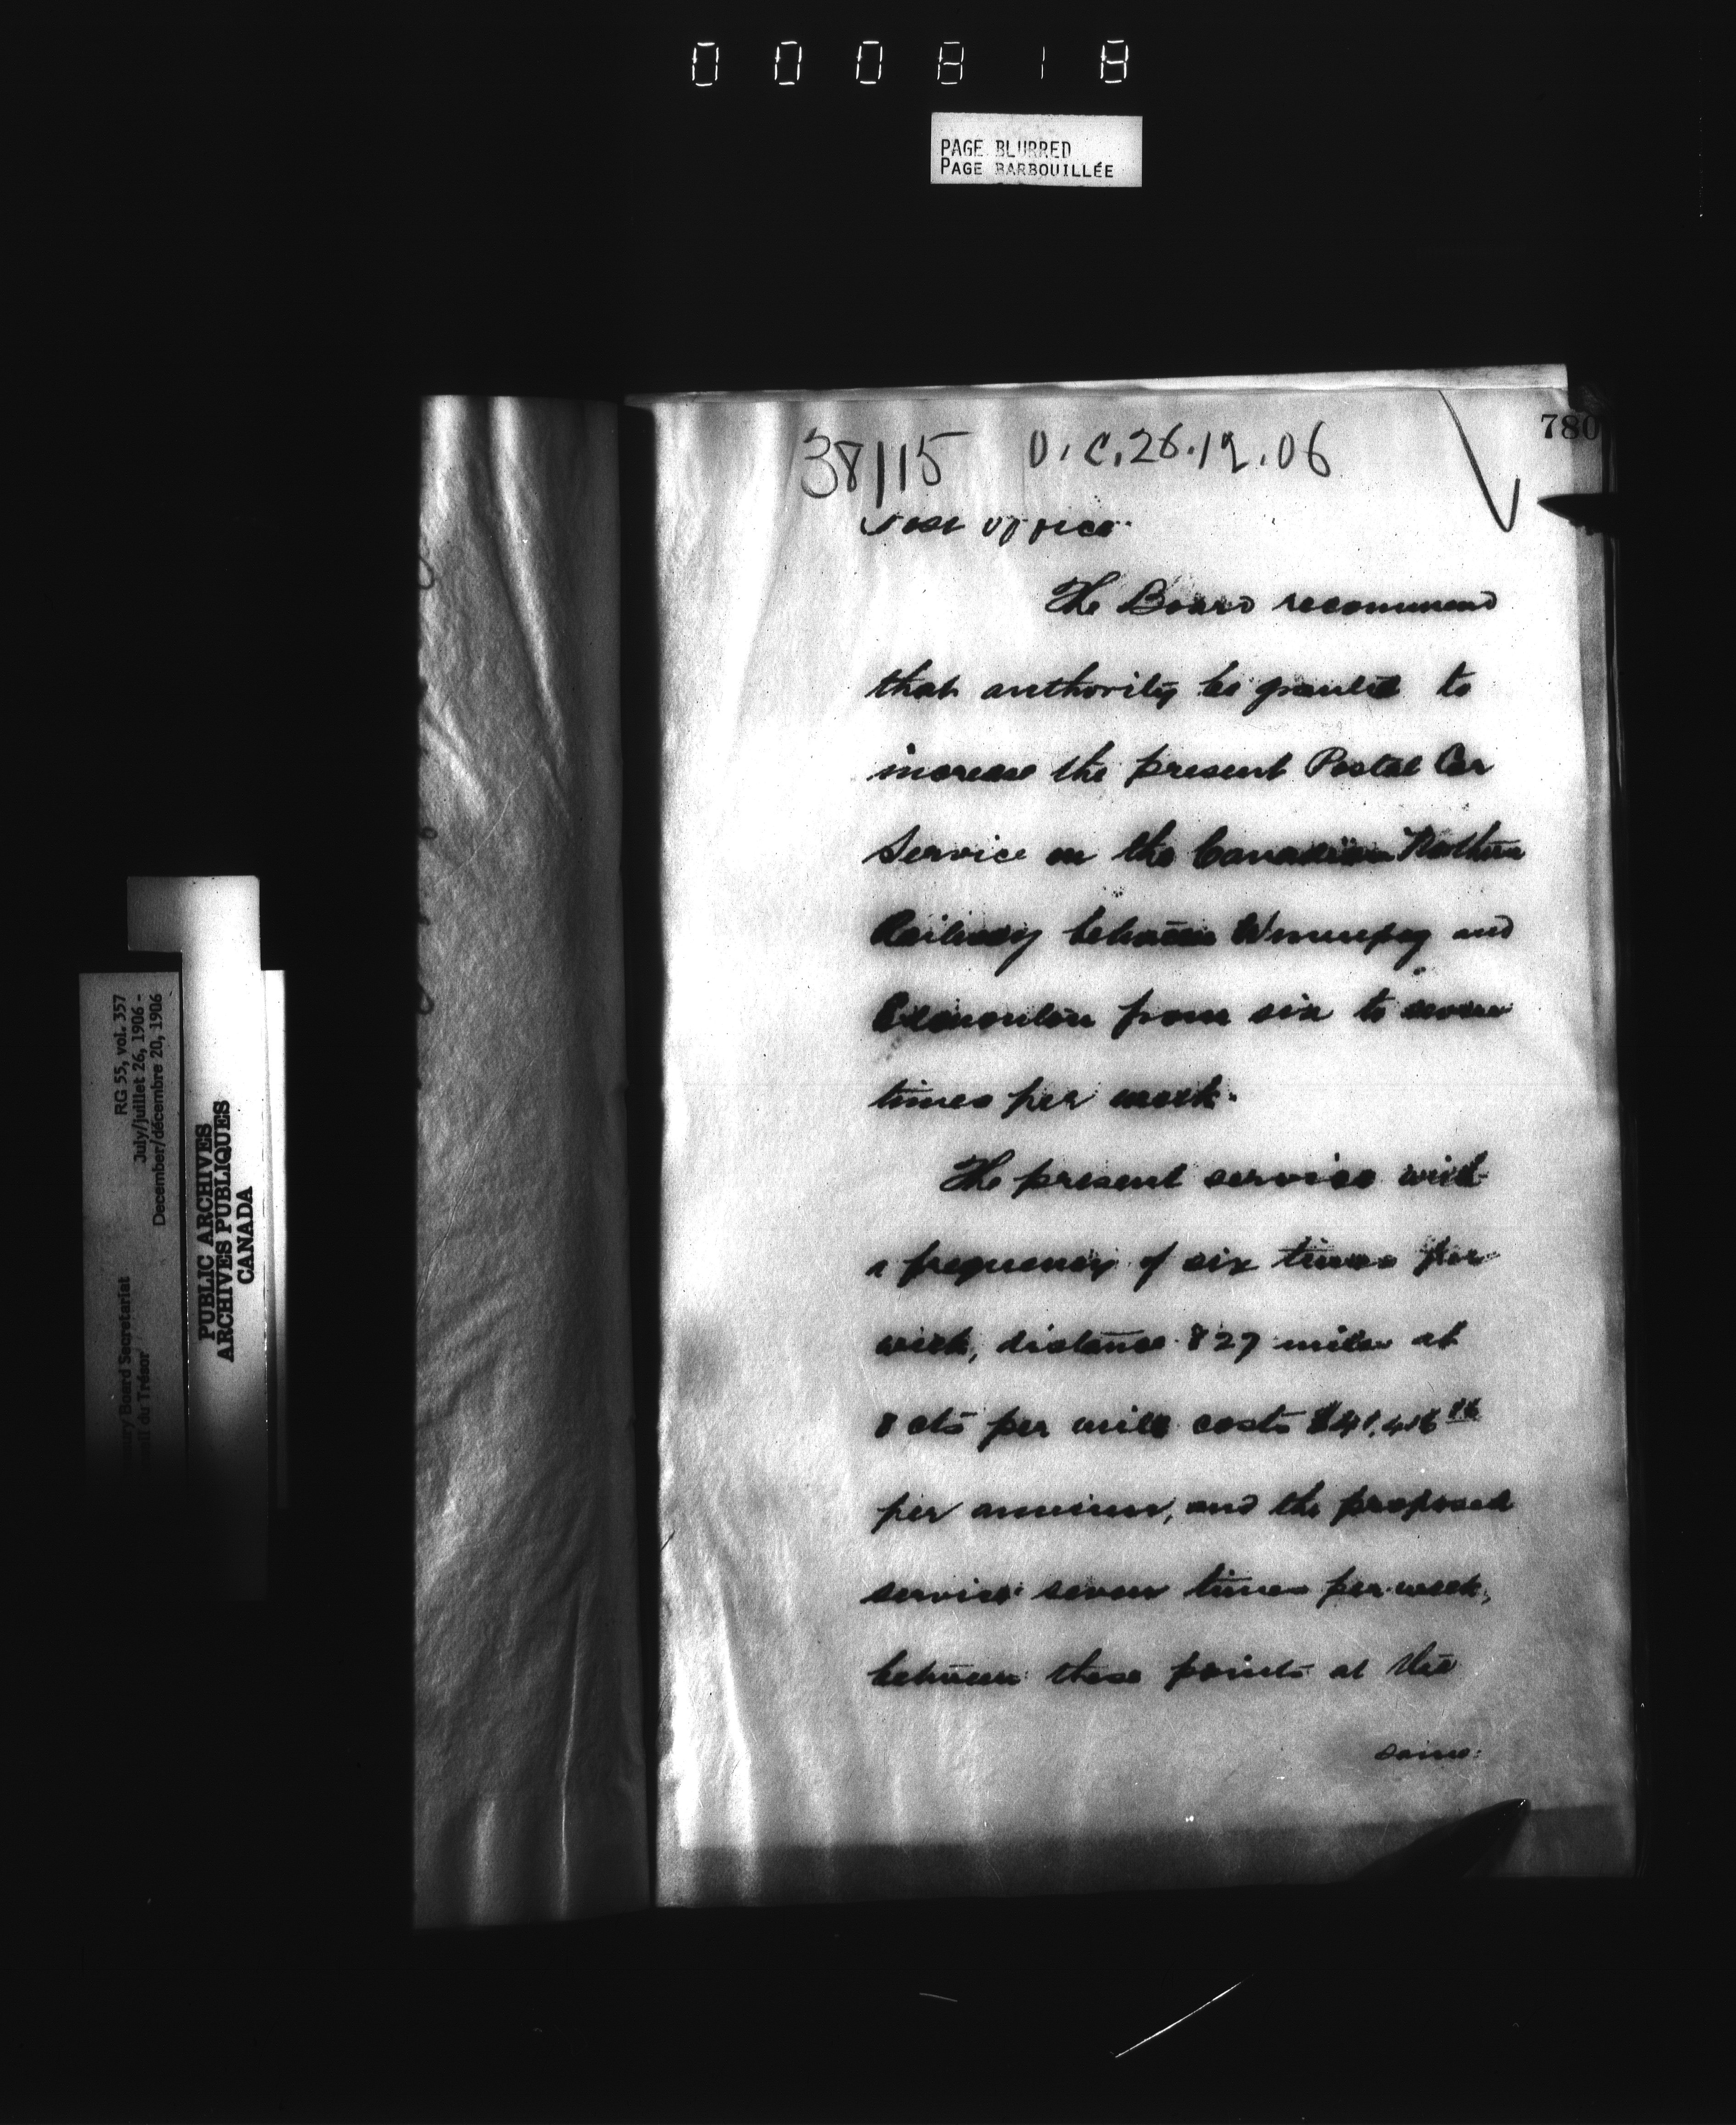 000818
PAGE BLURRED
PAGE BARBOUILLÉE
780
38/15 O.C. 26.12.06
Post Office
The Board recommend
that authority be granted to
increase the present Postal Car
Service on the Canadian Northern
Railway between Winnipeg and
Edmonton from six to seven
times per week.
The present service with
a frequency of six times per
week, distance 827 miles at
8 cts per mile costs
per annum, and the proposed
service seven times per week,
between these points at the
same
RG 55, vol. 357
July/juillet 26, 1906 -
December/décembre 20, 1906
Board Secretariat
du Trésor
PUBLIC ARCHIVES
ARCHIVES PUBLIQUES
CANADA